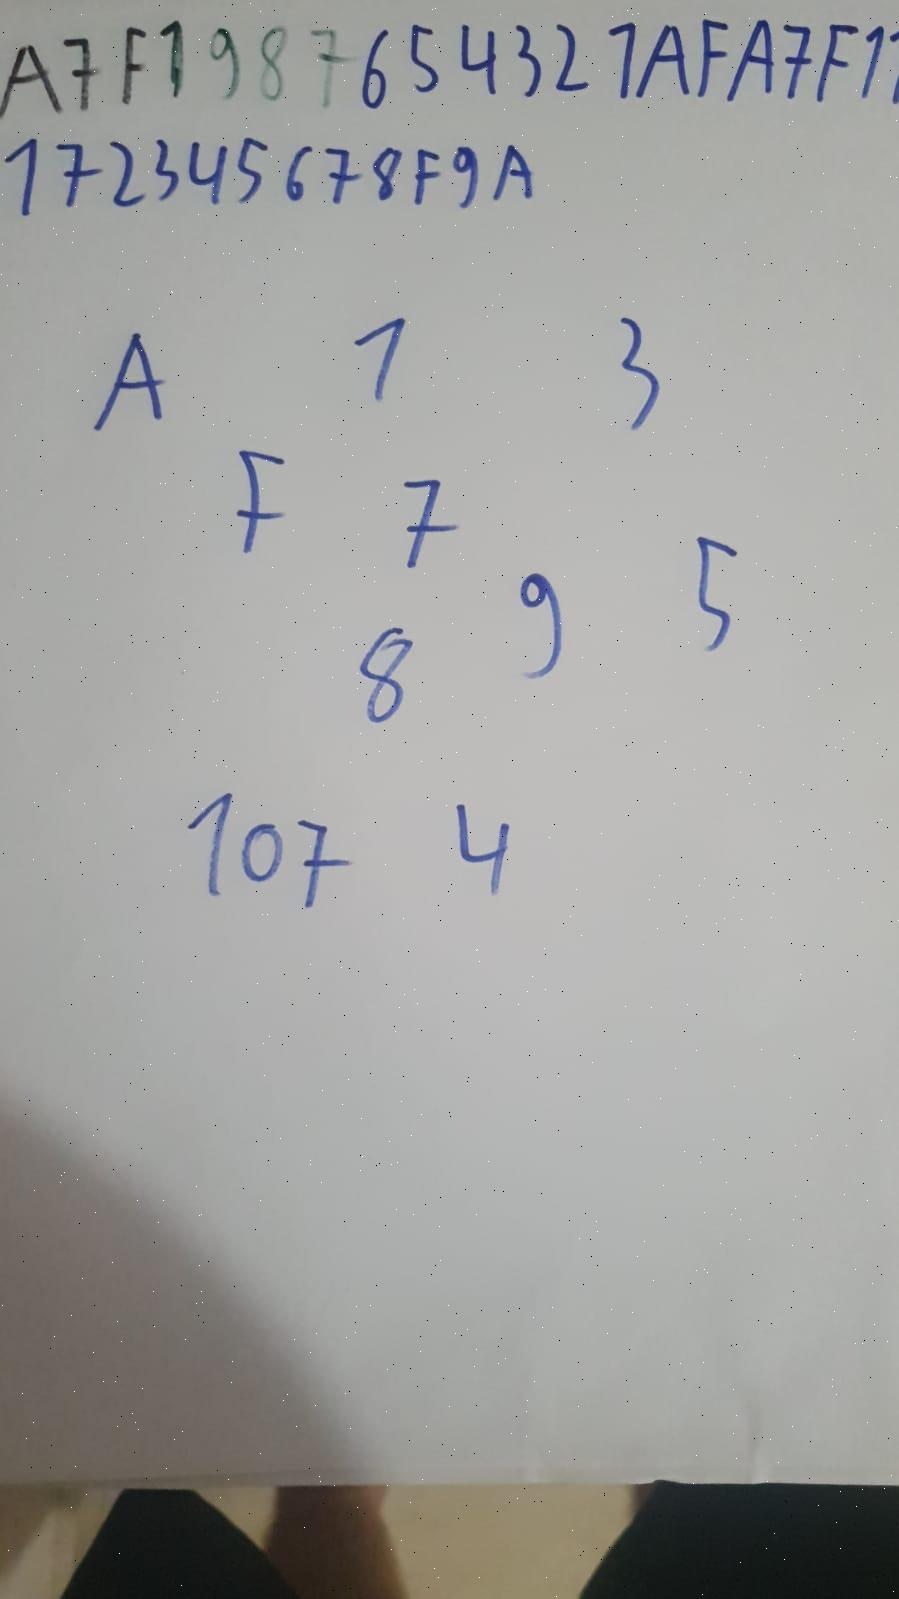 A7F1987654321AFA7F11
172345678F9A
A 1 3
F 7
9 5
8
107 4